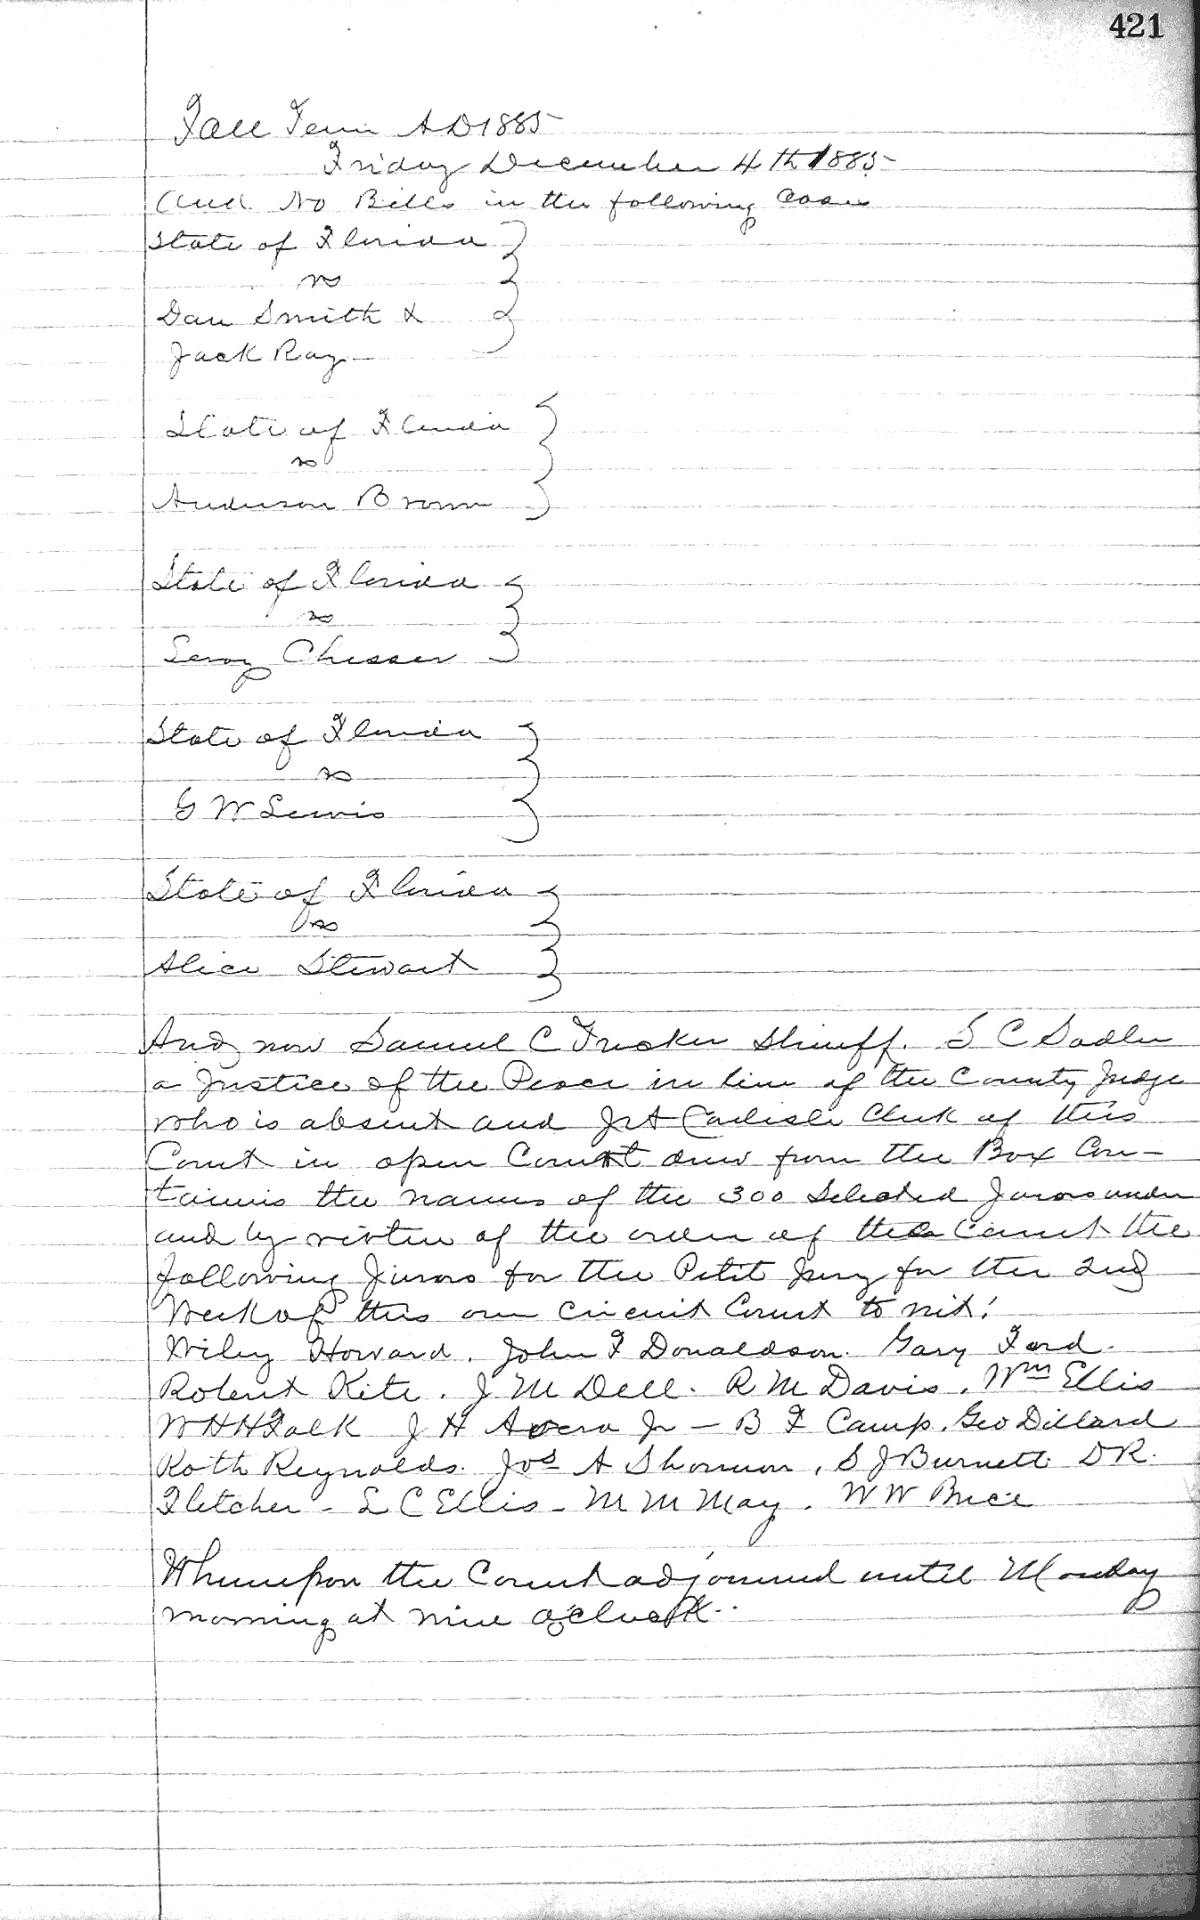 421
Fall Term AD 1885
Friday December 4th 1885
and No Bills in the following Cases
State of Florida
vs
Dan Smith &
Jack Ray
State of Florida
vs
Anderson Brown
State of Florida
vs
Leroy Chesser
State of Florida
vs
G W Lewis
State of Florida
vs
Alice Stewart
And now Samuel C Tucker Sheriff. S C Sadler
a Justice of the Peace in lieu of the County Judge
who is absent and J A Carlisle Clerk of this
Court in open Court drew from the Box Con-
taining the names of the 300 Selected Jurors under
and by virtue of the order of the Court the
following Jurors for the Petit Jury for the 2nd
Week of this our Circuit Court to wit:
Wiley Howard. John F Donaldson. Gary Ford.
Robert Kite. J M Dell. R M Davis. Wm Ellis
W H H Falk J H Avera Jr - B F Camp. Geo Dillard
Roth Reynolds. Jos A Shannon. S J Burnett. D R.
Fletcher - L C Ellis - M M May. W W Price
Whereupon the Court adjourned until Monday
morning at nine o'clock.